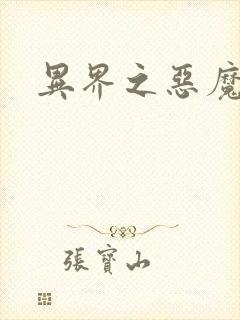 異界之惡魔
張寶山